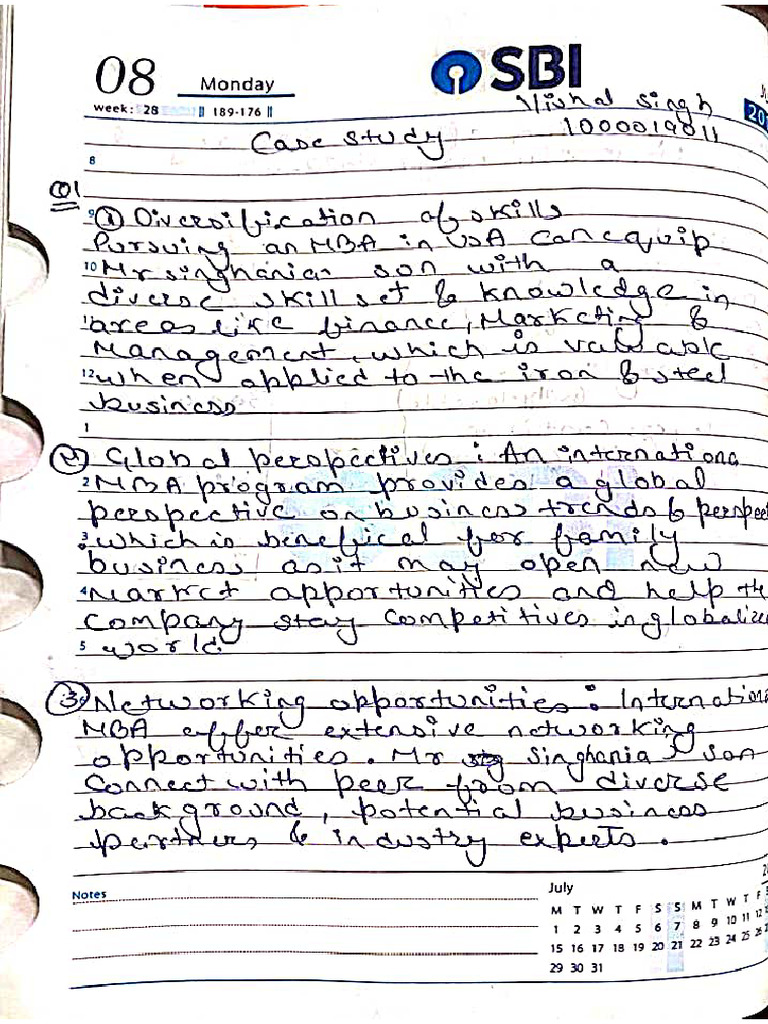 08 Monday
SBI
week: 28 || 189-176 ||
Vishal Singh
20
Case study
1000019011
8
Q1
9 ① Diversification of skills
Pursuing an MBA in USA can equip
10 Mr singhanias son with a
diverse skill set & knowledge in
areas like finance, Marketing &
Management, which is valuable
12 when applied to the iron & steel
business
1
② Global perspectives : An internationa
2 MBA program provides a global
perspective on business trends & perspec
3 which is benefical for family
business as it may open new
4 Market opportunities and help th
company stay competitives in globalize
5 world.
③ Networking opportunities : Internationa
MBA offer extensive networking
opportunities. Mr Singhania's son
Connect with peer from diverse
background, potential business
partners & industry experts.
Notes
July
M T W T F S S M T W T F
1 2 3 4 5 6 7 8 9 10 11 12
15 16 17 18 19 20 21 22 23 24 25 26
29 30 31